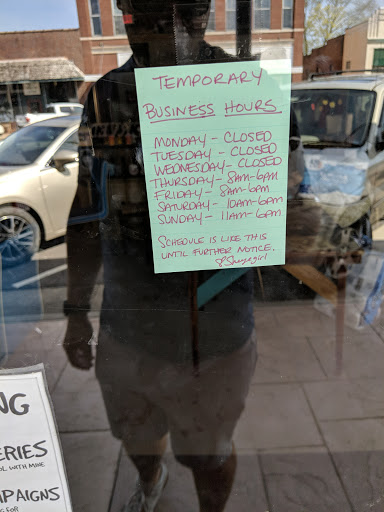 TEMPORARY
BUSINESS HOURS
MONDAY - CLOSED
TUESDAY - CLOSED
WEDNESDAY - CLOSED
THURSDAY - 8AM-6PM
FRIDAY - 8AM-6PM
SATURDAY - 10AM-6PM
SUNDAY - 11AM-6PM
SCHEDULE IS LIKE THIS
UNTIL FURTHER NOTICE.
NG
ERIES
OL WITH MINE
PAIGNS
NG FOR